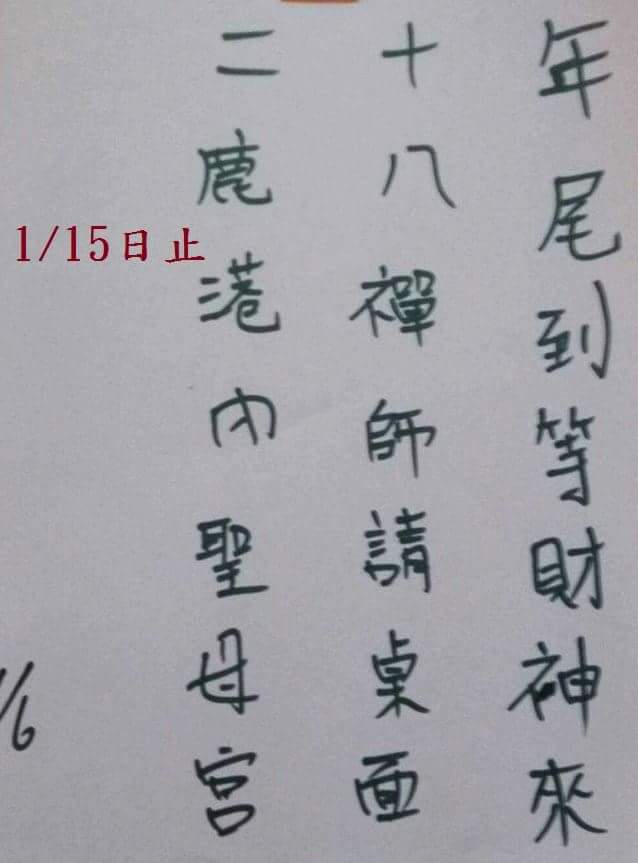 年尾到等財神來
十八禪師請桌面
二鹿港內聖母宮
1/15日止
1/6